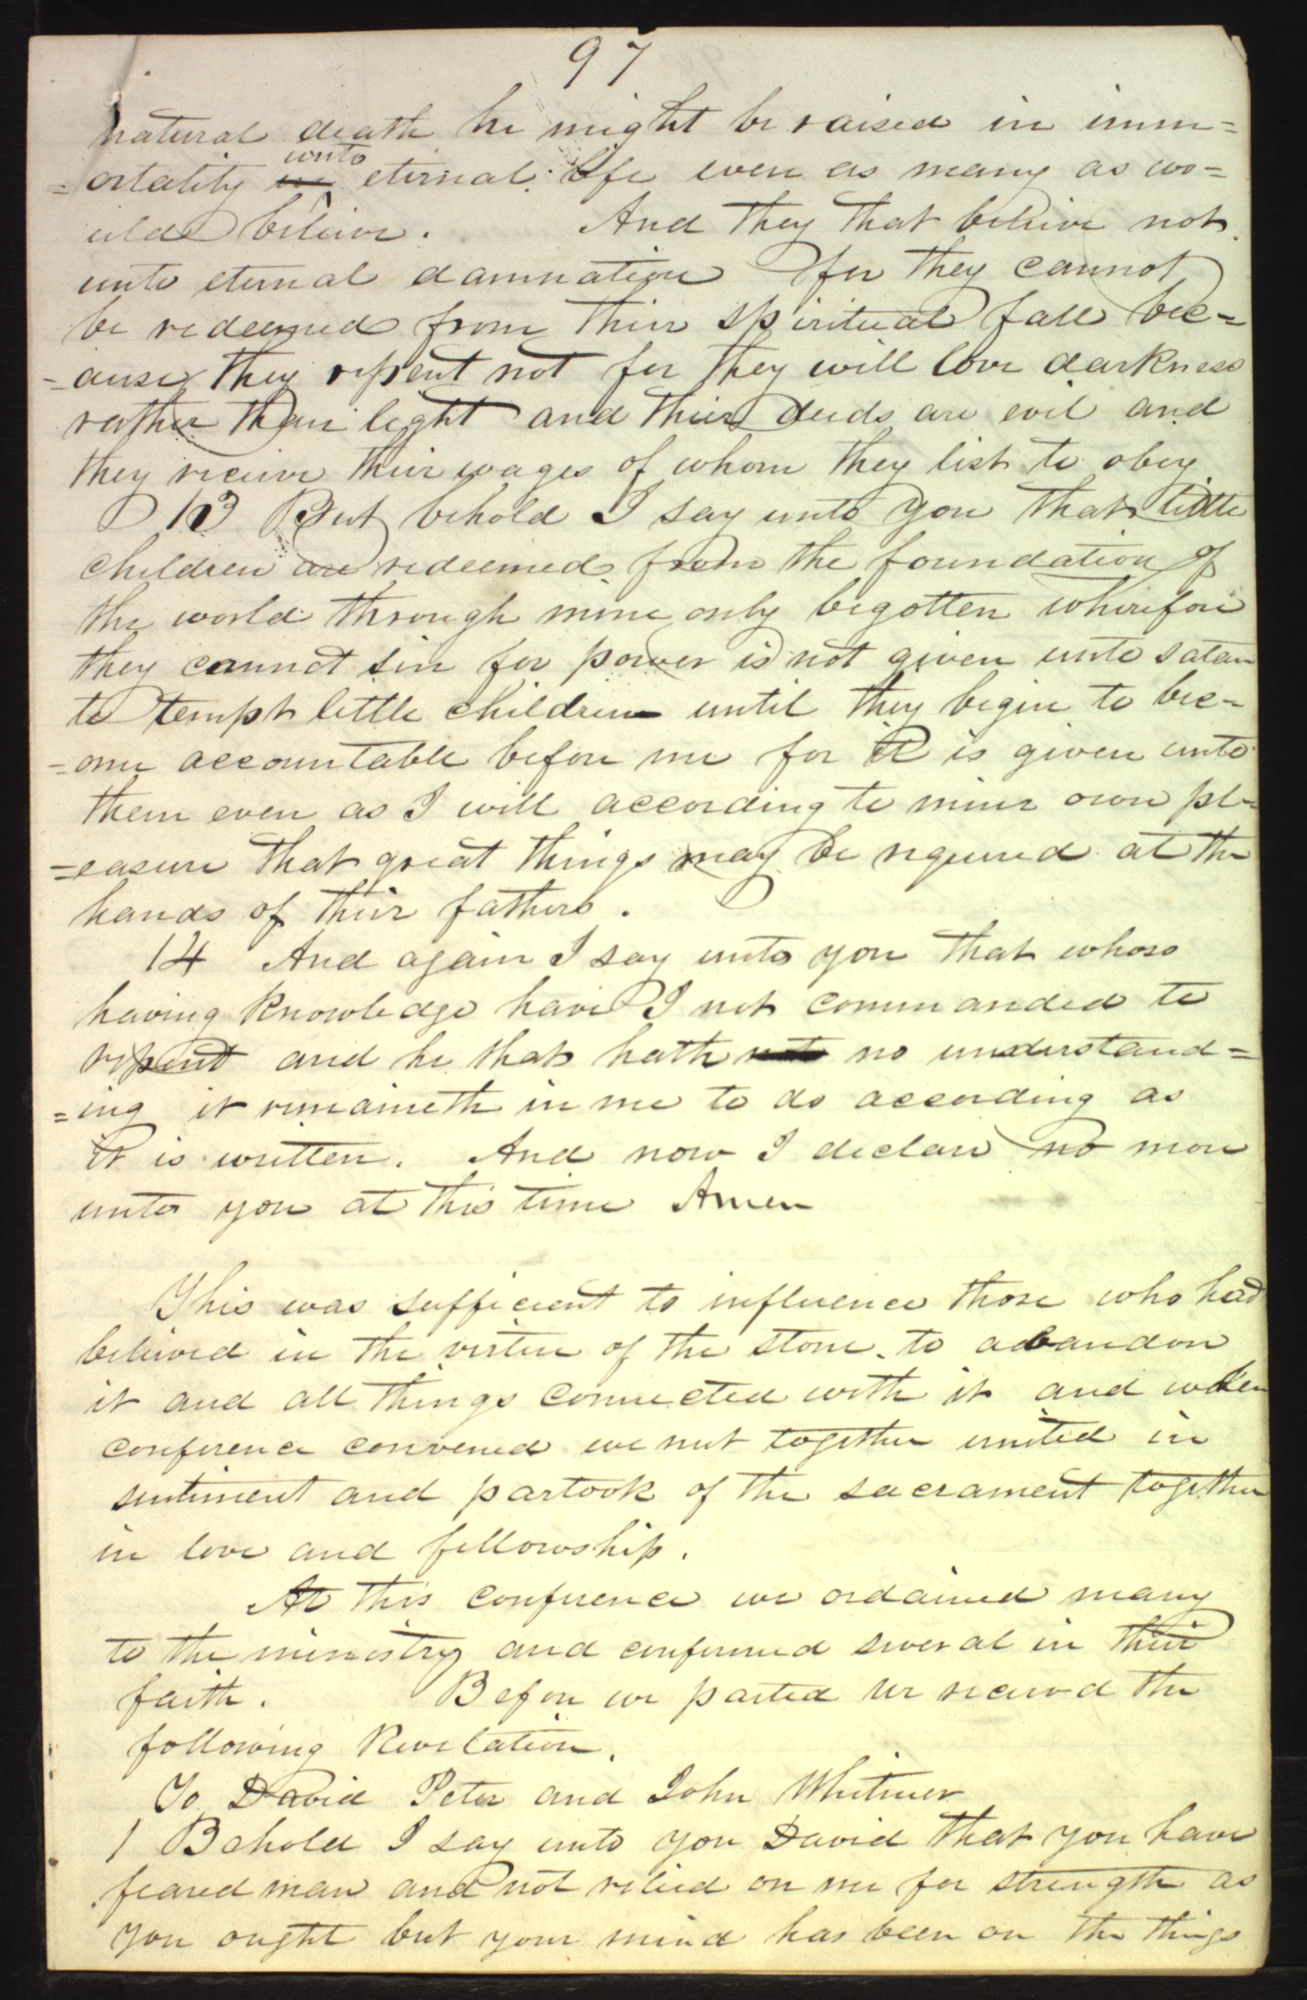 97
natural death he might be raised in imm=
=ortality in unto eternal life even as many as wo=
uld believe. And they that believe not
unto eternal damnation for they cannot
be redeemed from their spiritual fall bec=
=ause they repent not for they will love darkness
rather than light and their deeds are evil and
they receive their wages of whom they list to obey
13 But behold I say unto you that little
children are redeemed from the foundation of
the world through mine only begotten wherefore
they cannot sin for power is not given unto satan
to tempt little children until they begin to bec=
=ome accountable before me for it is given unto
them even as I will according to mine own pl=
=easure that great things may be required at the
hands of their fathers.
14 And again I say unto you that whoso
having knowledge have I not commanded to
repent and he that hath no understand=
=ing it remaineth in me to do according as
it is written. And now I declare no more
unto you at this time Amen
This was sufficient to influence those who had
believed in the virtue of the stone to abandon
it and all things connected with it and when
conference convened we met together united in
sentiment and partook of the sacrament together
in love and fellowship.
At this conference we ordained many
to the ministry and confirmed several in their
faith. Before we parted we received the
following Revelation.
To David Peter and John Whitmer
1 Behold I say unto you David that you have
feared man and not relied on me for strength as
you ought but your mind has been on the things